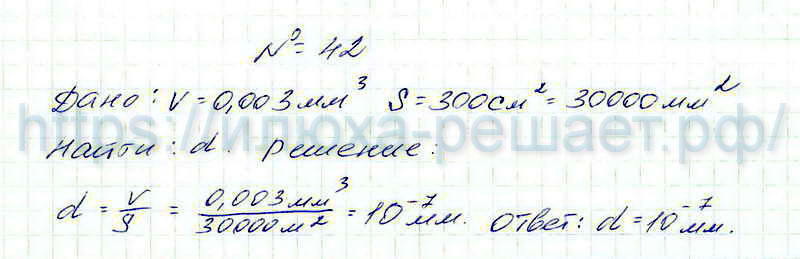 № 42
Дано: V = 0,003 мм³ S = 300 см² = 30000 мм²
https://илюха-решает.рф/
Найти: d. Решение:
d = V/S = 0,003 мм³/30000 м² = 10⁻⁷ мм. Ответ: d = 10⁻⁷ мм.